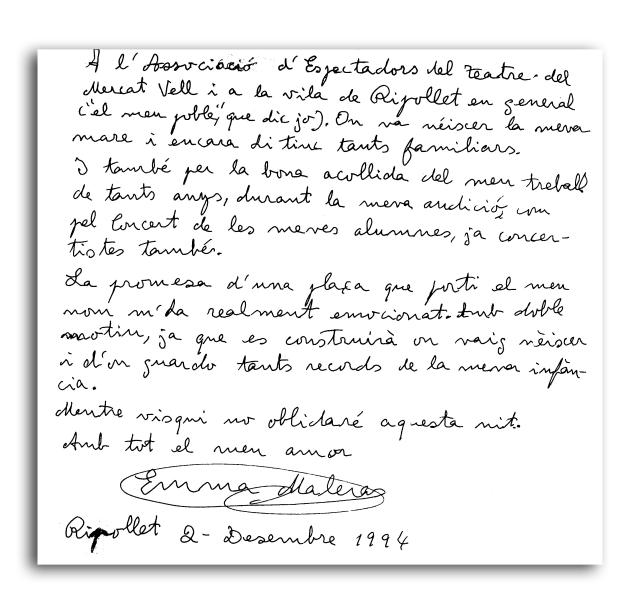 A l'Associació d'Espectadors del Teatre del
Mercat Vell i a la vila de Ripollet en general
("el meu poble", que dic jo). On va néiscer la meva
mare i encara di tinc tants familiars.
I també per la bona acollida del meu treball
de tants anys, durant la meva audició, com
pel Concert de les meves alumnes, ja concer-
tistes també.
La promesa d'una plaça que porti el meu
nom m'ha realment emocionat. Amb doble
motiu, ja que es construirà on vaig nèiscer
i d'on guardo tants records de la meva infàn-
cia.
Mentre visqui no oblidaré aquesta nit.
Amb tot el meu amor
Emma Maleras
Ripollet 2 - Desembre 1994